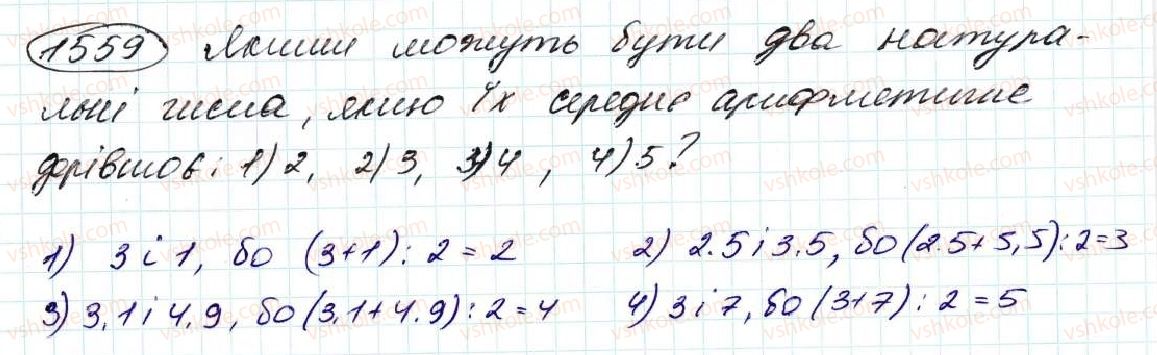 1559 Якими можуть бути два натура-
льні числа, якщо їх середнє арифметичне
дорівнює: 1) 2, 2) 3, 3) 4, 4) 5?
1) 3 і 1, бо (3+1) : 2 = 2 2) 2.5 і 3.5, бо (2.5 + 5,5) : 2 = 3
3) 3,1 і 4.9, бо (3,1 + 4.9) : 2 = 4 4) 3 і 7, бо (3+7) : 2 = 5
vshkole.com